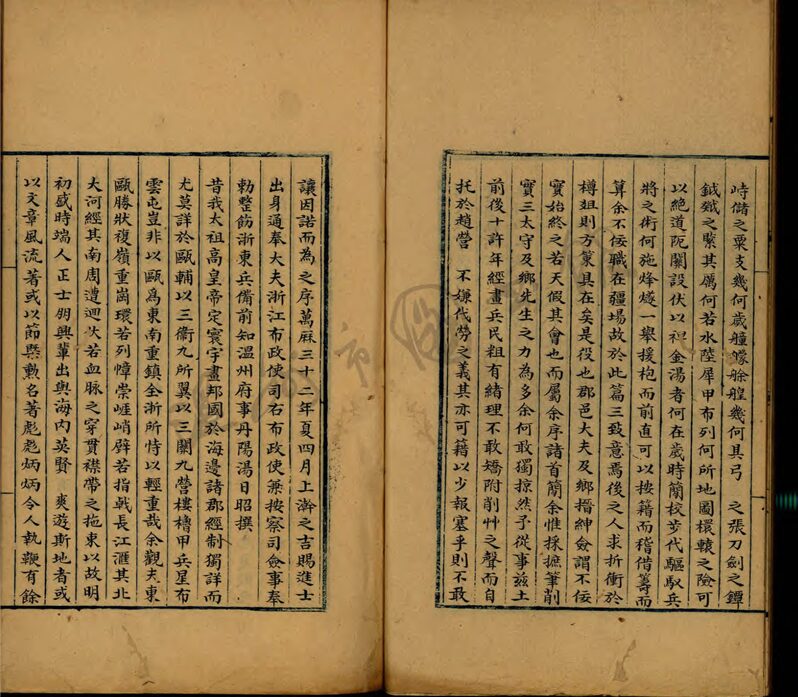 峙儲之粟支幾何歲艟艨艅艎幾何其弓 之張刀劍之鐔
鉞鑯之緊其厲何若水陸犀甲布列何所地圖檈轅之險可
以絶道阨關設伏以 金湯者何在歲時蘭校步伐驅馭兵
將之術何施烽燧一舉援枹而前直可以按籍而稽借箸而
算余不佞職在疆塲故於此篇三致意焉後之人求折衝於
樽俎則方策具在矣是役也郡邑大夫及鄉搢紳僉謂不佞
實始終之若天假其會也而屬余序諸首簡余惟採摭筆削
實三太守及鄉先生之力為多余何敢獨掠然予從事兹土
前後十許年經畫兵民粗有緒理不敢矯附削艸之聲而自
托於趙營 不嫌代勞之義其亦可籍以少報塞乎則不敢
讓因諾而為之序萬厤三十二年夏四月上澣之吉賜進士
出身通奉大夫浙江布政使司右布政使兼按察司僉事奉
勑整飭浙東兵備前知溫州府事丹陽湯日昭撰
昔我太祖高皇帝定寰宇畫邦國於海邊諸郡經制獨詳而
尤莫詳於甌輔以三衞九所翼以三關九營樓櫓甲兵星布
雲屯豈非以甌為東南重鎮全浙所恃以輕重哉余觀夫東
甌勝狀複嶺重崗環若列幛崇崕峭劈若指㦸長江滙其北
大河經其南周遭迴汏若血脉之穿貫襟帶之拖束以故明
初盛時端人正士朋興輩出與海内英賢 爽遊斯地者或
以文章風流著或以節槩勲名著彪彪炳炳令人執鞭有餘